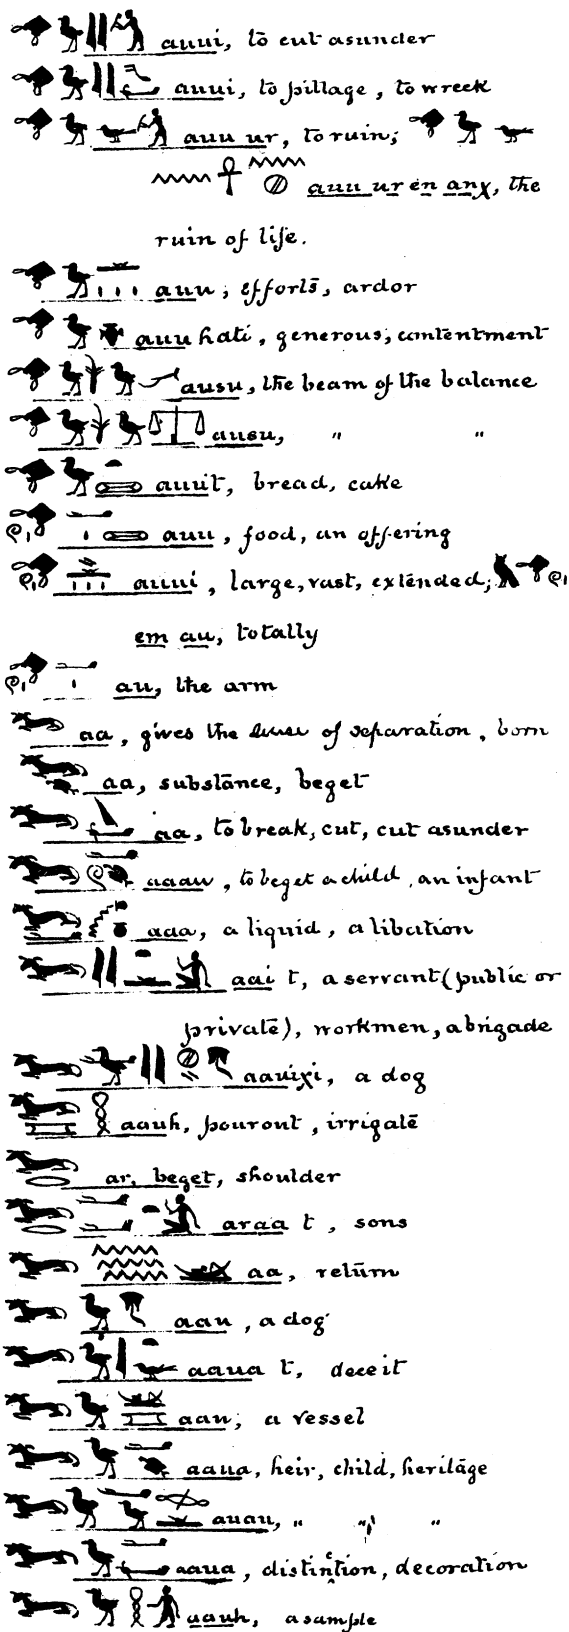 auui, to cut asunder
auui, to pillage, to wreck
auu ur, to ruin;
auu ur en anχ, the
ruin of life.
auu; efforts, ardor
auu hati, generous; contentment
ausu, the beam of the balance
ausu, " "
auuit, bread, cake
auu, food, an offering
auui, large, vast, extended;
em au, totally
au, the arm
aa, gives the sense of separation, born
aa, substance, beget
aa, to break, cut, cut asunder
aaau, to beget a child, an infant
aaa, a liquid, a libation
aai t, a servant (public or
private), workmen, a brigade
aauiχi, a dog
aauh, pour out, irrigate
ar, beget, shoulder
araa t, sons
aa, return
aau, a dog
aaua t, deceit
aau; a vessel
aaua, heir, child, heritage
auau, " " "
aaua, distinction, decoration
aauh, a sample